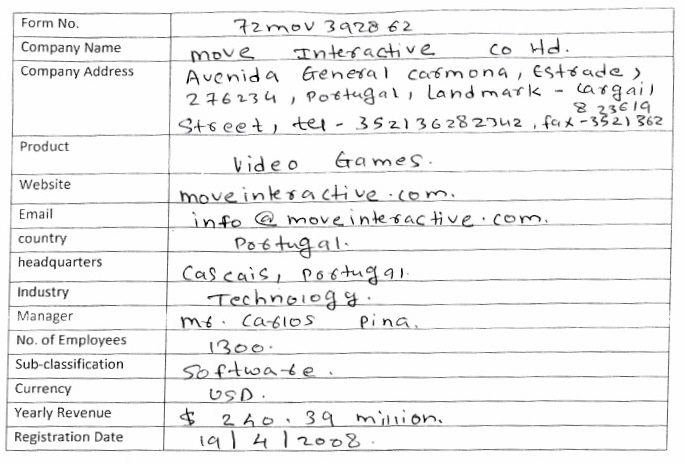 Form No. 72mov 392862
Company Name move Interactive co ltd.
Company Address Avenida General carmona, Estrade,
276234, Portugal, Landmark - Cargail
Street, tel - 352136282342, fax -3521362
823619
Product Video Games.
Website moveinteractive.com.
Email info@moveinteractive.com.
country Portugal.
headquarters Cascais, Portugal.
Industry Technology.
Manager mr. Carlos Pina.
No. of Employees 1300.
Sub-classification Software.
Currency USD.
Yearly Revenue $ 240.39 million.
Registration Date 19/4/2008.